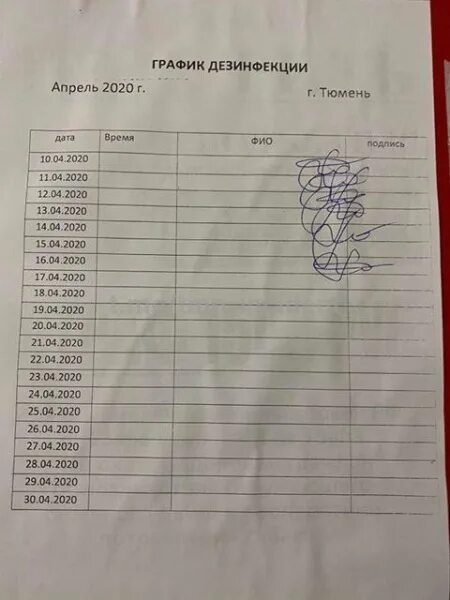 ГРАФИК ДЕЗИНФЕКЦИИ
Апрель 2020 г. г. Тюмень
дата Время ФИО подпись
10.04.2020
11.04.2020
12.04.2020
13.04.2020
14.04.2020
15.04.2020
16.04.2020
17.04.2020
18.04.2020
19.04.2020
20.04.2020
21.04.2020
22.04.2020
23.04.2020
24.04.2020
25.04.2020
26.04.2020
27.04.2020
28.04.2020
29.04.2020
30.04.2020